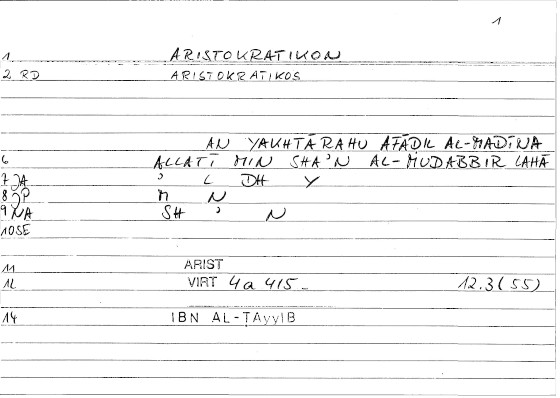 1
1 ARISTOKRATIKON
2 RD ARISTOKRATIKOS
AN YAKHTĀRAHU AFĀḌIL AL-MADĪNA
6 ALLATĪ MIN SHA'N AL-MUDABBIR LAHĀ
7 JA ' L DH Y
8 JP M N
9 NA SH ' N
10 SE
11 ARIST
12 VIRT 4a 4/5 12.3 (55)
14 IBN AL-ṬAyyIB